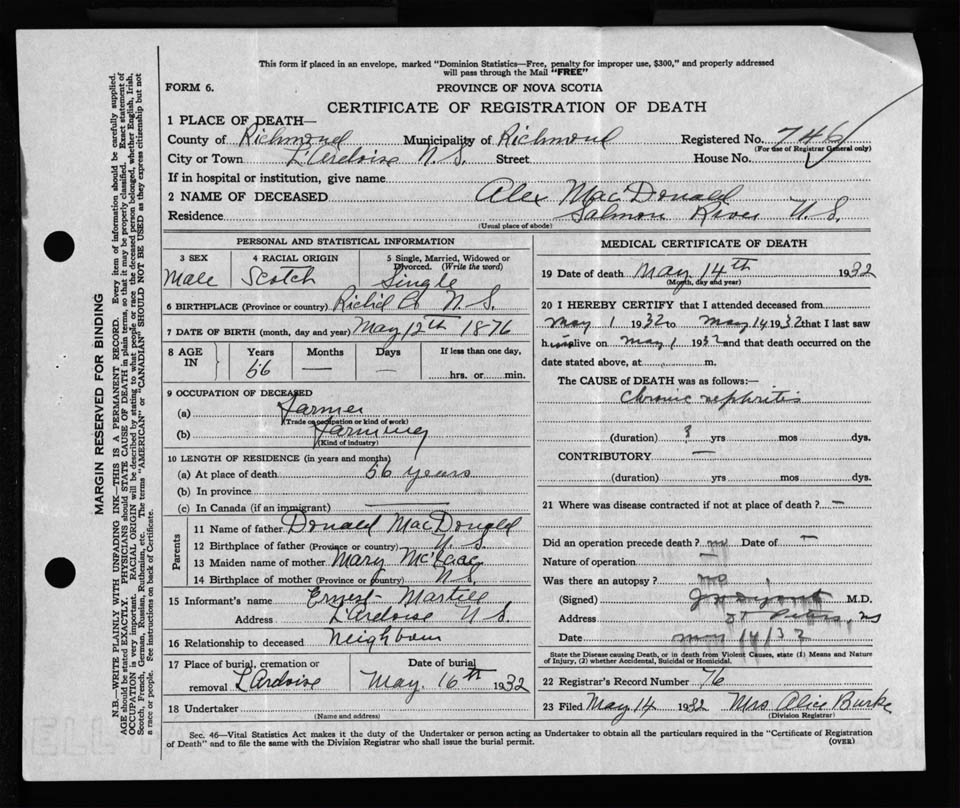 This form if placed in an envelope, marked "Dominion Statistics—Free, penalty for improper use, $300," and properly addressed
will pass through the Mail "FREE"
FORM 6.
PROVINCE OF NOVA SCOTIA
CERTIFICATE OF REGISTRATION OF DEATH
1 PLACE OF DEATH—
County of Richmond Municipality of Richmond Registered No. 746
(For use of Registrar General only)
City or Town L'Ardoise N.S. Street House No.
If in hospital or institution, give name
2 NAME OF DECEASED Alex MacDonald
Residence Salmon River N.S.
(Usual place of abode)
PERSONAL AND STATISTICAL INFORMATION
3 SEX 4 RACIAL ORIGIN 5 Single, Married, Widowed or
Divorced. (Write the word)
Male Scotch Single
6 BIRTHPLACE (Province or country) Richd Co N.S.
7 DATE OF BIRTH (month, day and year) May 12th 1876
8 AGE IN Years Months Days If less than one day,
56 — — hrs. or min.
9 OCCUPATION OF DECEASED
(a) Farmer
(Trade or occupation or kind of work)
(b) Farming
(Kind of industry)
10 LENGTH OF RESIDENCE (in years and months)
(a) At place of death 56 years
(b) In province
(c) In Canada (if an immigrant)
Parents
11 Name of father Donald MacDonald
12 Birthplace of father (Province or country) N.S
13 Maiden name of mother Mary McIsaac
14 Birthplace of mother (Province or country) N.S.
15 Informant's name Ernest Martell
Address L'Ardoise N S.
16 Relationship to deceased Neighbour
17 Place of burial, cremation or Date of burial
removal L'Ardoise May. 16th 1932
18 Undertaker
(Name and address)
MEDICAL CERTIFICATE OF DEATH
19 Date of death May 14th 1932
(Month, day and year)
20 I HEREBY CERTIFY that I attended deceased from
May 1 1932 to May 14 1932 that I last saw
h im alive on May 1 1932 and that death occurred on the
date stated above, at m.
The CAUSE OF DEATH was as follows:—
Chronic nephritis
(duration) ? yrs mos dys.
CONTRIBUTORY —
(duration) yrs mos dys.
21 Where was disease contracted if not at place of death? —
Did an operation precede death? no Date of —
Nature of operation —
Was there an autopsy? no
(Signed) M.D.
Address St Peters, NS
Date May 14/32
State the Disease causing Death, or in death from Violent Causes, state (1) Means and Nature
of Injury, (2) whether Accidental, Suicidal or Homicidal.
22 Registrar's Record Number 76
23 Filed May 14 1932 Mrs Alice Burke
(Division Registrar)
Sec. 46—Vital Statistics Act makes it the duty of the Undertaker or person acting as Undertaker to obtain all the particulars required in the "Certificate of Registration
of Death" and to file the same with the Division Registrar who shall issue the burial permit. (OVER)
MARGIN RESERVED FOR BINDING
N.B.—WRITE PLAINLY WITH UNFADING INK—THIS IS A PERMANENT RECORD. Every item of information should be carefully supplied.
AGE should be stated EXACTLY. PHYSICIANS should STATE CAUSE OF DEATH in plain terms, so that it may be properly classified. Exact statement of
OCCUPATION is very important. RACIAL ORIGIN will be described by stating to what people or race the deceased person belonged, whether English, Irish,
Scotch, French, German, Russian, Ruthenian, etc. The terms "AMERICAN" or "CANADIAN" SHOULD NOT BE USED as they express citizenship but not
a race or people. See instructions on back of Certificate.